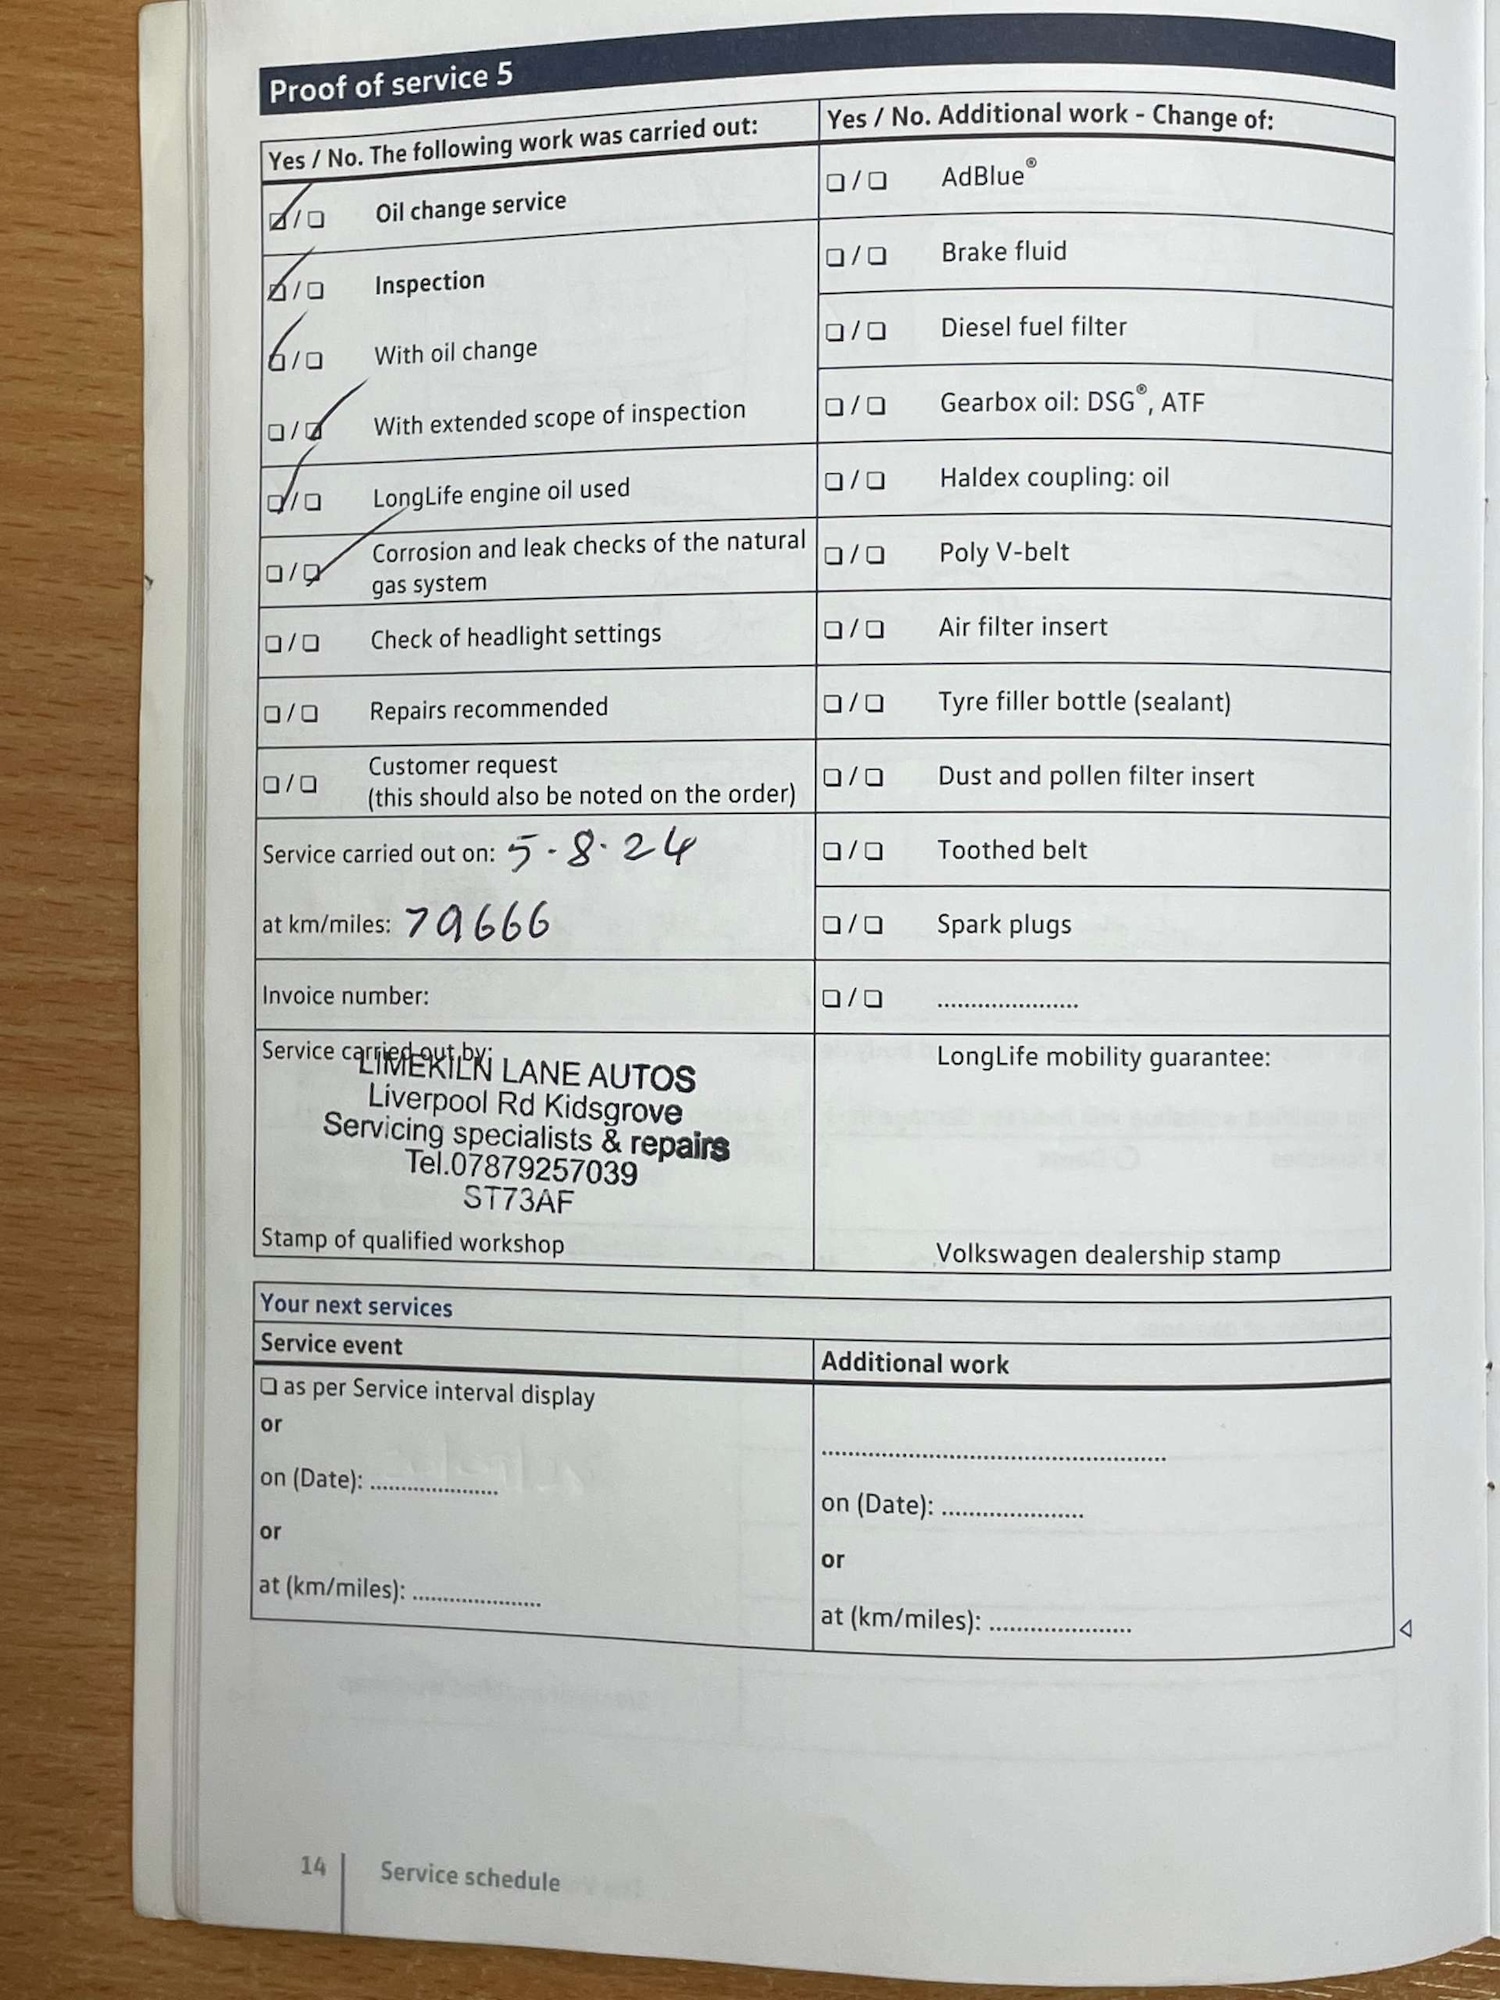 Proof of service 5
Yes / No. The following work was carried out:
☑/☐ Oil change service
☑/☐ Inspection
☑/☐ With oil change
☐/☑ With extended scope of inspection
☑/☐ LongLife engine oil used
☐/☑ Corrosion and leak checks of the natural
gas system
☐/☐ Check of headlight settings
☐/☐ Repairs recommended
☐/☐ Customer request
(this should also be noted on the order)
Service carried out on: 5-8.24
at km/miles: 79666
Invoice number:
Service carried out by:
LIMEKILN LANE AUTOS
Liverpool Rd Kidsgrove
Servicing specialists & repairs
Tel.07879257039
ST73AF
Stamp of qualified workshop
Yes / No. Additional work - Change of:
☐/☐ AdBlue®
☐/☐ Brake fluid
☐/☐ Diesel fuel filter
☐/☐ Gearbox oil: DSG®, ATF
☐/☐ Haldex coupling: oil
☐/☐ Poly V-belt
☐/☐ Air filter insert
☐/☐ Tyre filler bottle (sealant)
☐/☐ Dust and pollen filter insert
☐/☐ Toothed belt
☐/☐ Spark plugs
☐/☐ .....................
LongLife mobility guarantee:
Volkswagen dealership stamp
Your next services
Service event
☐ as per Service interval display
or
on (Date): ...................
or
at (km/miles): ...................
Additional work
...................................................
on (Date): .....................
or
at (km/miles): .....................
14 Service schedule